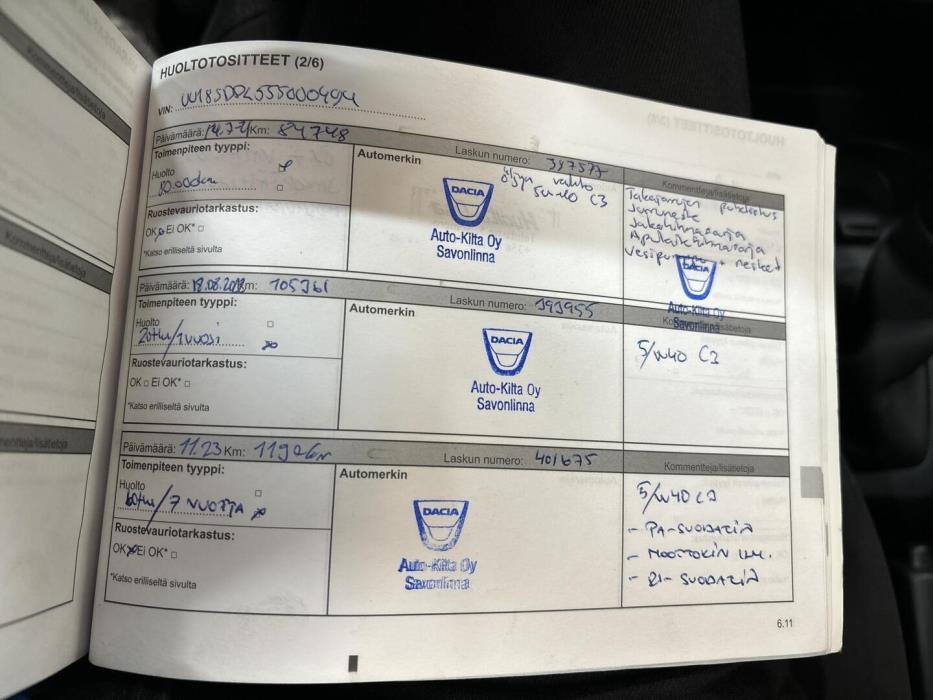 HUOLTOTOSITTEET (2/6)
VIN:
Päivämäärä: Km: 84748
Laskun numero: 387577
Kommentteja/lisätietoja
Toimenpiteen tyyppi:
Huolto
Automerkin
öljyn vaihto
5w40 C3
Takajarrujen puhdistus
Jakohihnasarja
Apulaitehihnasarja
+ nesteet
Ruostevauriotarkastus:
OK Ei OK*
*Katso erilliseltä sivulta
DACIA
Auto-Kilta Oy
Savonlinna
DACIA
Auto-Kilta Oy
Savonlinna
Päivämäärä: Km: 105361
Laskun numero: 393955
Toimenpiteen tyyppi:
Huolto
20tkm/1 vuosi
Automerkin
5/W40 C3
Ruostevauriotarkastus:
OK Ei OK*
*Katso erilliseltä sivulta
DACIA
Auto-Kilta Oy
Savonlinna
Päivämäärä: 11.23 Km:
Laskun numero: 401675
Kommentteja/lisätietoja
Toimenpiteen tyyppi:
Huolto
/ 7 VUOTTA
Automerkin
5/W40 C3
- PA-SUODATIN
- MOOTTORIN ILM.
- SUODATIN
Ruostevauriotarkastus:
OK Ei OK*
*Katso erilliseltä sivulta
DACIA
Auto-Kilta Oy
Savonlinna
6.11